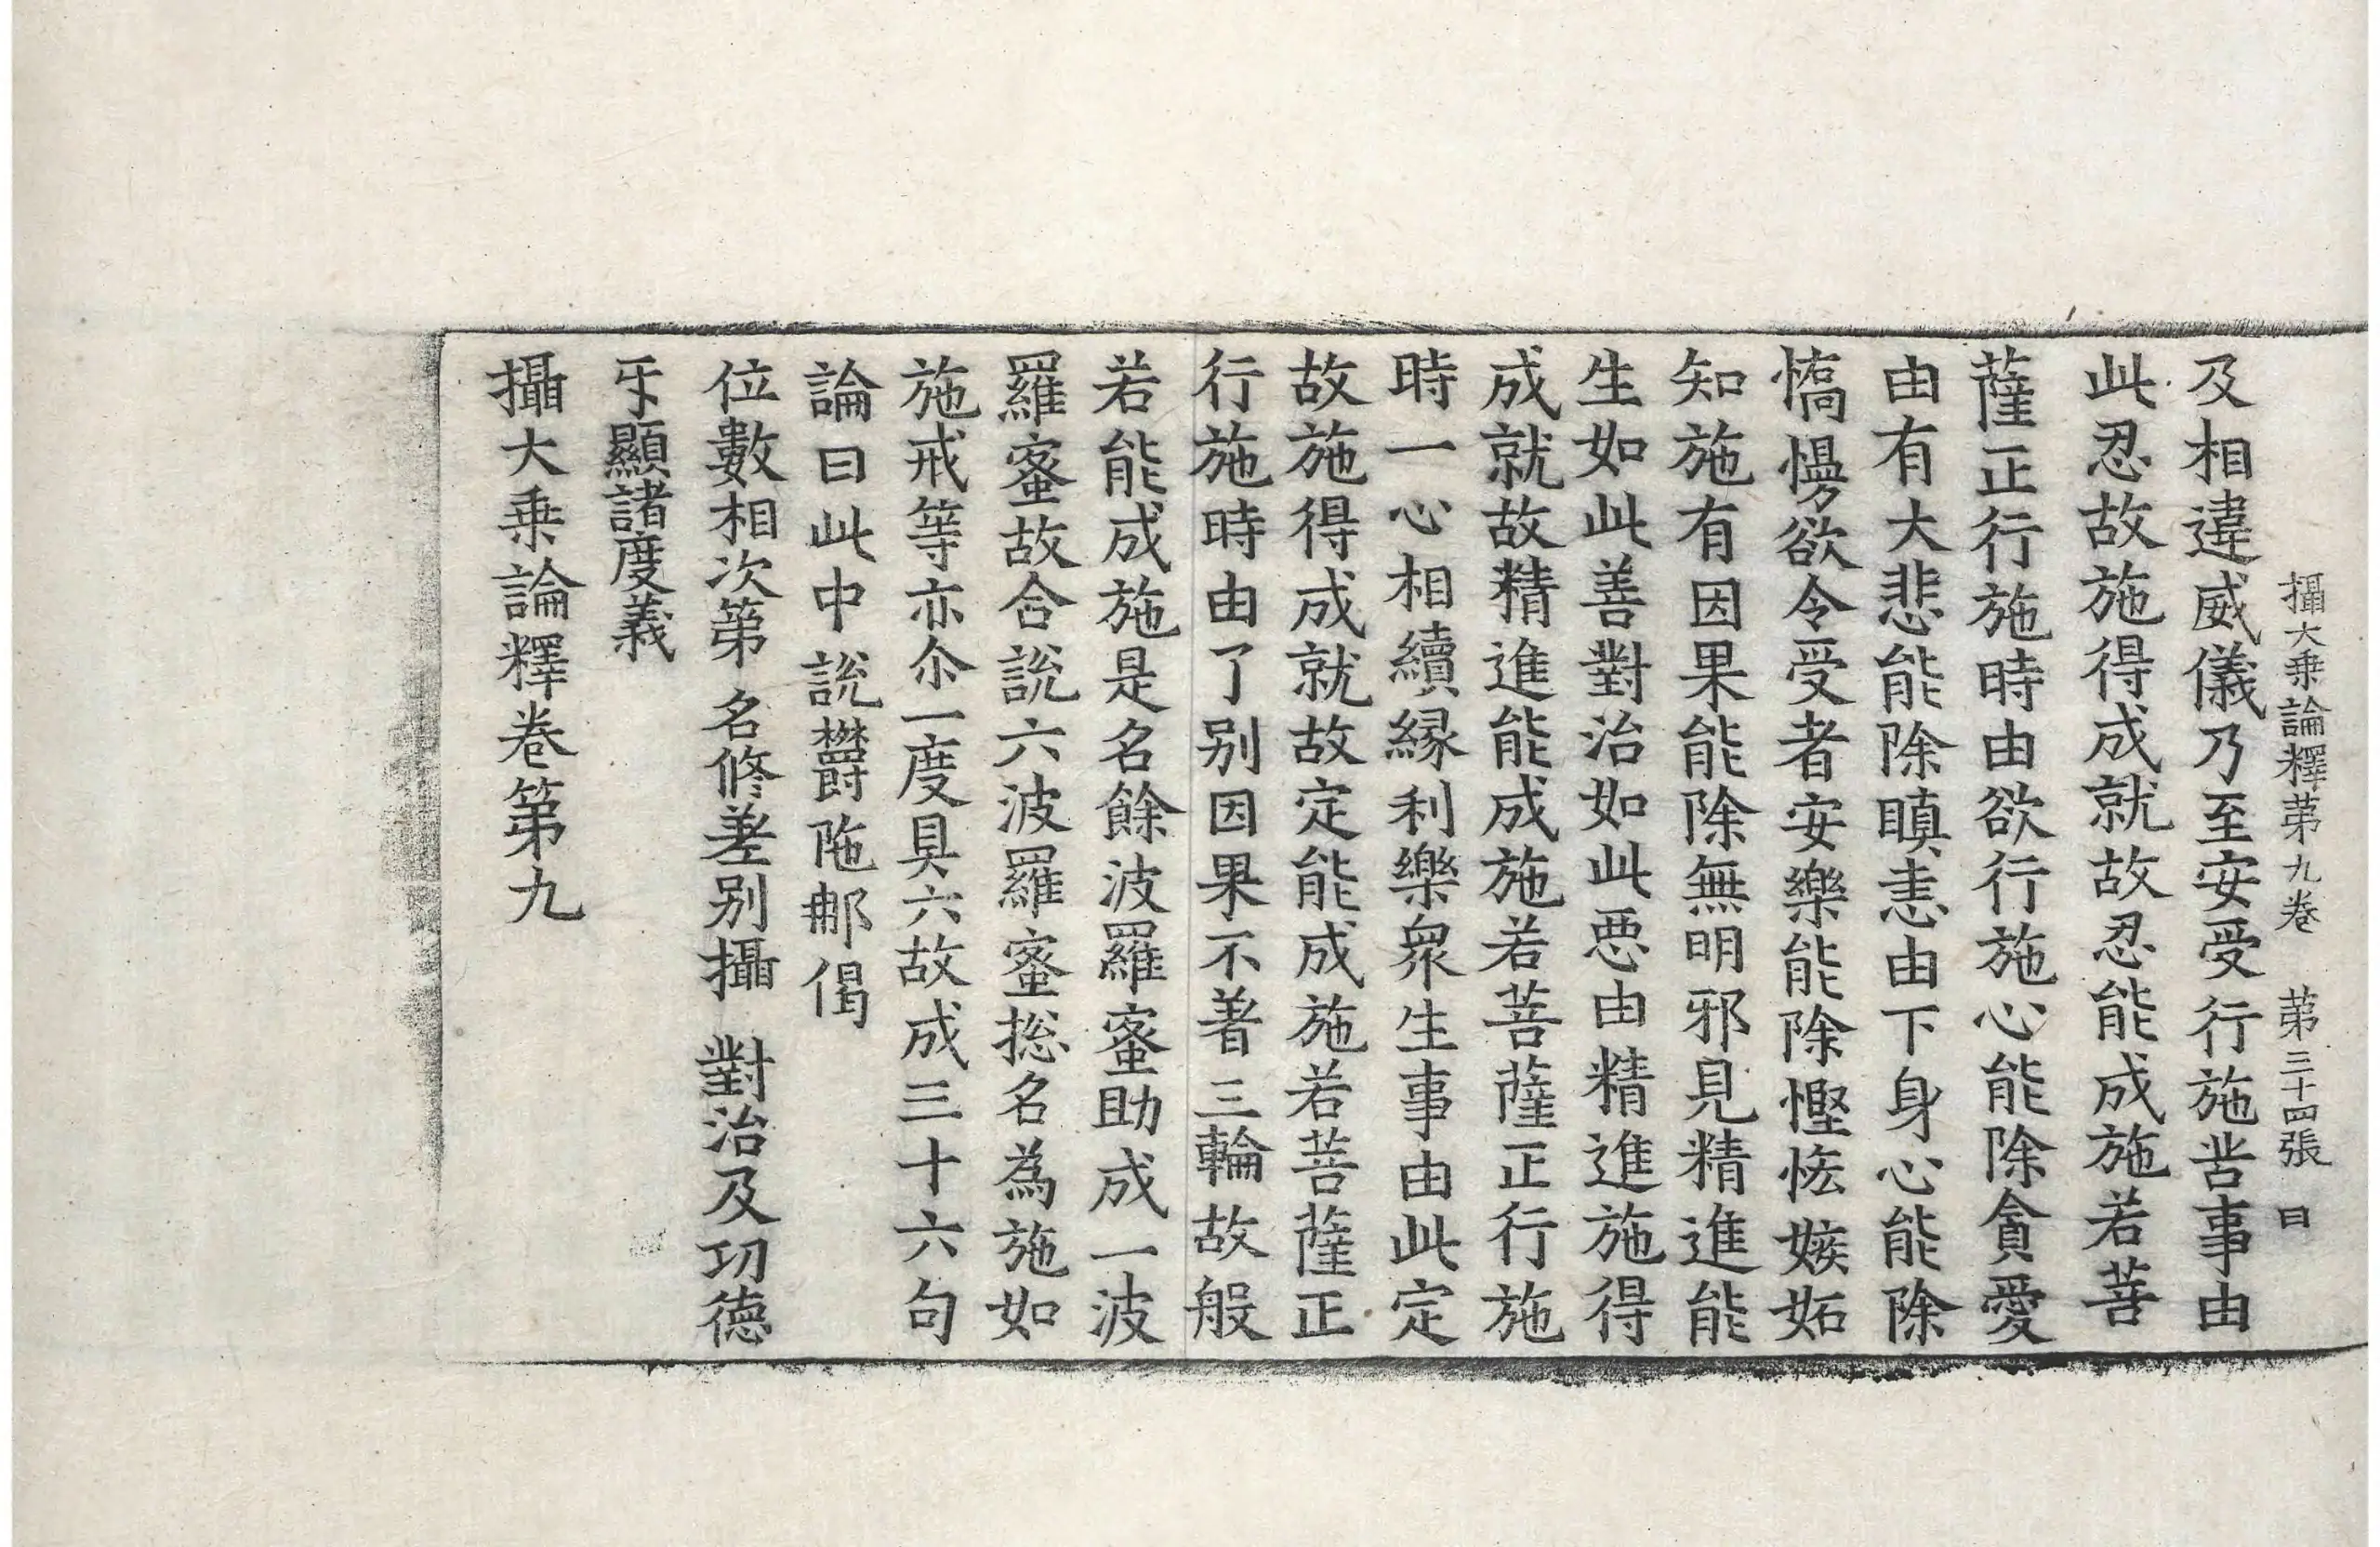 攝大乗論釋苐九卷　苐三十四張　曰
及相違威儀乃至安受行施苦事由
此忍故施得成就故忍能成施若菩
薩正行施時由欲行施心能除貪愛
由有大悲能除瞋恚由下身心能除
憍慢欲令受者安樂能除慳悋嫉妬
知施有因果能除無明邪見精進能
生如此善對治如此惡由精進施得
成就故精進能成施若菩薩正行施
時一心相續緣利樂衆生事由此定
故施得成就故定能成施若菩薩正
行施時由了别因果不著三輪故般
若能成施是名餘波羅蜜助成一波
羅蜜故合說六波羅蜜揔名為施如
施戒等亦尒一度具六故成三十六句
論曰此中說欝陁郍偈
位數相次第　名修差别攝　對治及功德
㸦顯諸度義
攝大乗論釋卷第九